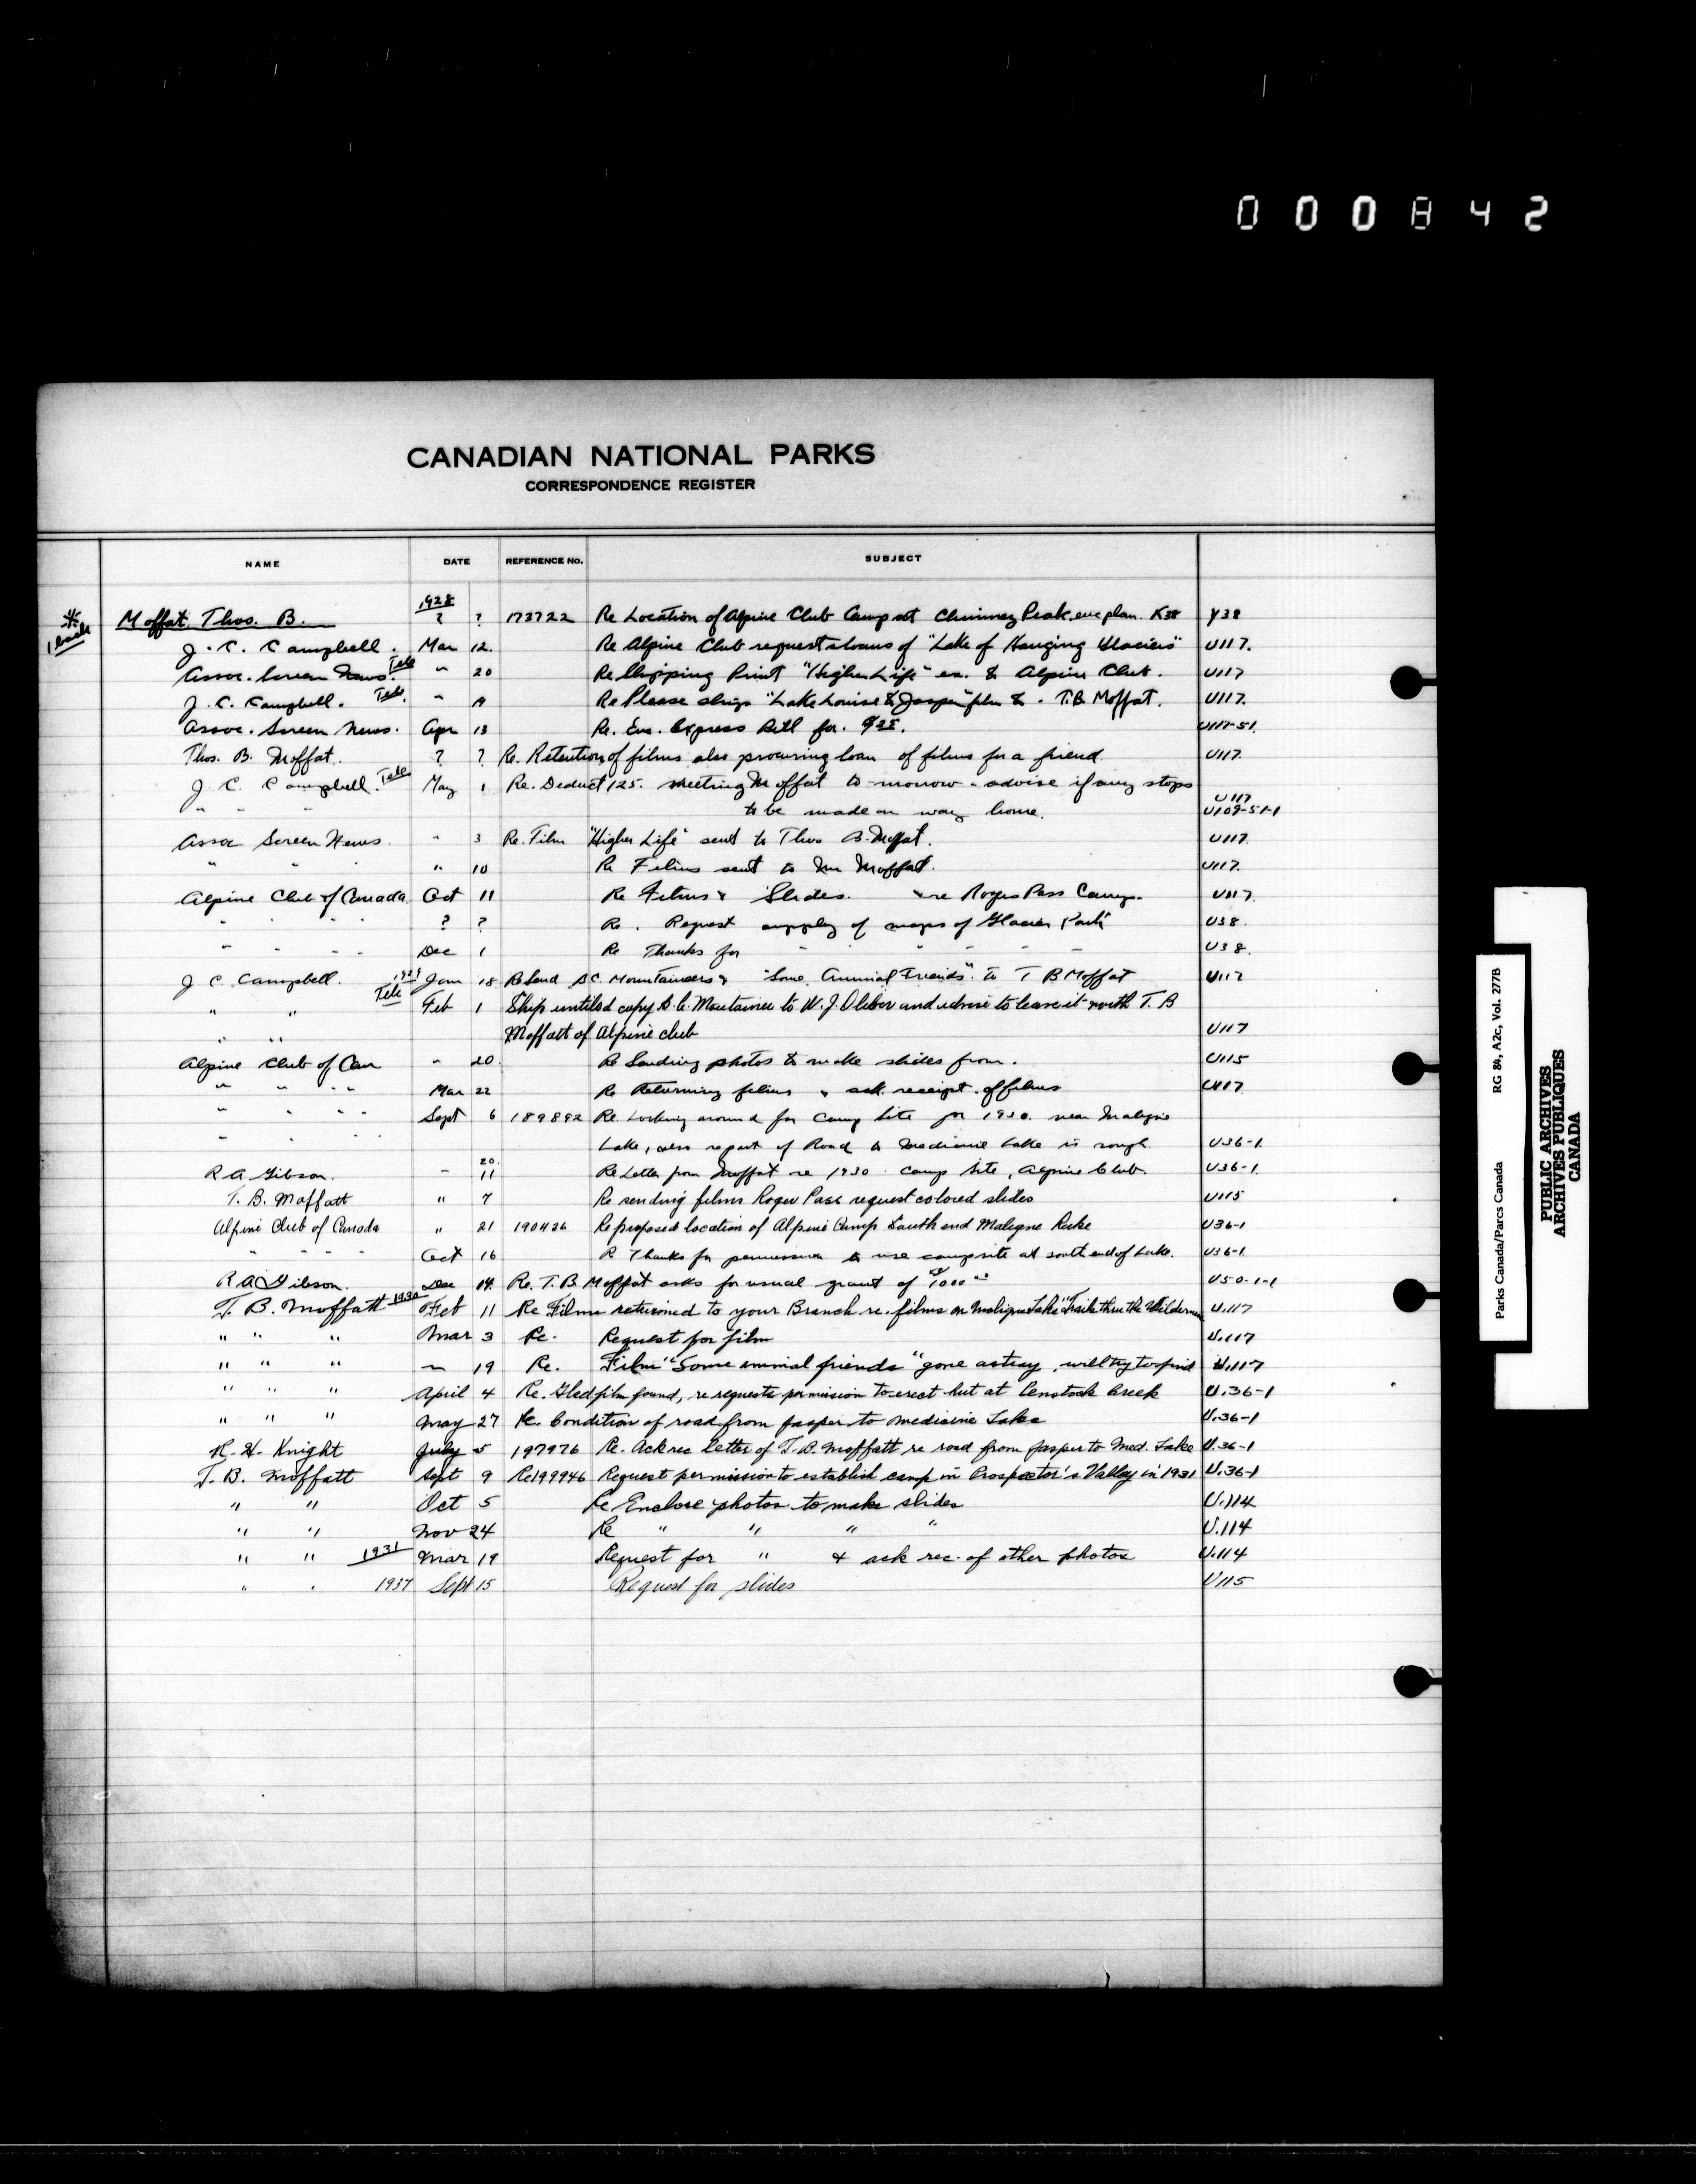 000842
CANADIAN NATIONAL PARKS
CORRESPONDENCE REGISTER
NAME DATE REFERENCE No. SUBJECT
1928
* Moffat Thos. B. ? ? 173722 Re Location of Alpine Club Camp at Chimney Peak enc plan. K38 Y38
J. C. Campbell. Mar 12. Re Alpine Club requests loans of "Lake of Hanging Glaciers" U117.
Assoc. Screen News. Tele " 20 Re Shipping Print "Higher Life" ex. to Alpine Club. U117
J. C. Campbell. Tele. " Re Please ship "Lake Louise to Jasper" film to T.B. Moffat. U117.
Assoc. Screen News. Apr 13 Re. Enc. Express Bill for. U117-51.
Thos. B. Moffat. ? ? Re. Retention of films also procuring loan of films for a friend. U117.
J. C. Campbell. Tele May 1 Re. Deduct 125. meeting Moffat to-morrow - advise if any stops
" " " to be made on way home. U117 U109-51-1
Assoc Screen News. " 3 Re. Film "Higher Life" sent to Thos B. Moffat. U117.
" " " 10 Re Films sent to Mr Moffat. U117.
Alpine Club of Canada Oct 11 Re Films & Slides. re Rogers Pass Camp. U117.
" " " ? ? Re. Request supply of maps of Glacier Park U38.
" " " " Dec 1 Re Thanks for " " " " " U38.
J C Campbell. 1929 Jan 18 Re Send BC Mountaineers & "Some Animal Friends". to T B Moffat U117
" " Tele Feb 1 Ship untitled copy B.C. Mountaineer to W. J. Oliver and advise to leave it with T. B
" " " Moffatt of Alpine club U117
Alpine Club of Can " 20. Re Sending photos to make slides from. U115
" " " " Mar 22 Re Returning films & ack. receipt. of films U117.
" " " " Sept 6 189892 Re. Looking around for Camp Site for 1930. near Maligne
" " " " Lake, also report of Road to Medicine Lake is rough U36-1.
20.
R A Gibson. " 11 Re Letter from Moffat re 1930 Camp Site, Alpine Club. U36-1.
T. B. Moffatt " 7 Re sending films Roger Pass request colored slides U115
Alpine Club of Canada " 21 190426 Re proposed location of Alpine Camp South end Maligne Lake U36-1
" " " " Oct 16 R Thanks for permission to use campsite at south end of Lake. U36-1.
R A Gibson. Dec 14. Re. T.B Moffat asks for usual grant of $1000 U50-1-1
T. B. Moffatt 1930 Feb 11 Re Films returned to your Branch re. films on Maligne Lake "Trails thru the Wilderness U.117
" " " Mar 3 Re. Request for film U.117
" " " " 19 Re. Film "Some animal friends" gone astray, will try to find U.117
" " " April 4 Re. Glad film found, re requests permission to erect hut at Penstock Creek U.36-1
" " " May 27 Re. Condition of road from Jasper to Medicine Lake U.36-1
R. H. Knight July 5 197976 Re. Ack rec letter of T. B. Moffatt re road from Jasper to Med. Lake U.36-1
T. B. Moffatt Sept 9 Re199946 Request permission to establish camp in Prospector's Valley in 1931 U.36-1
" " Oct 5 Re Enclose photos to make slides U.114
" " Nov 24 Re " " " " U.114
" " 1931 Mar 19 Request for " & ack rec. of other photos U.114
" " 1937 Sept 15 Request for slides U115
Parks Canada/Parcs Canada RG 84, A2c, Vol. 277B
PUBLIC ARCHIVES
ARCHIVES PUBLIQUES
CANADA